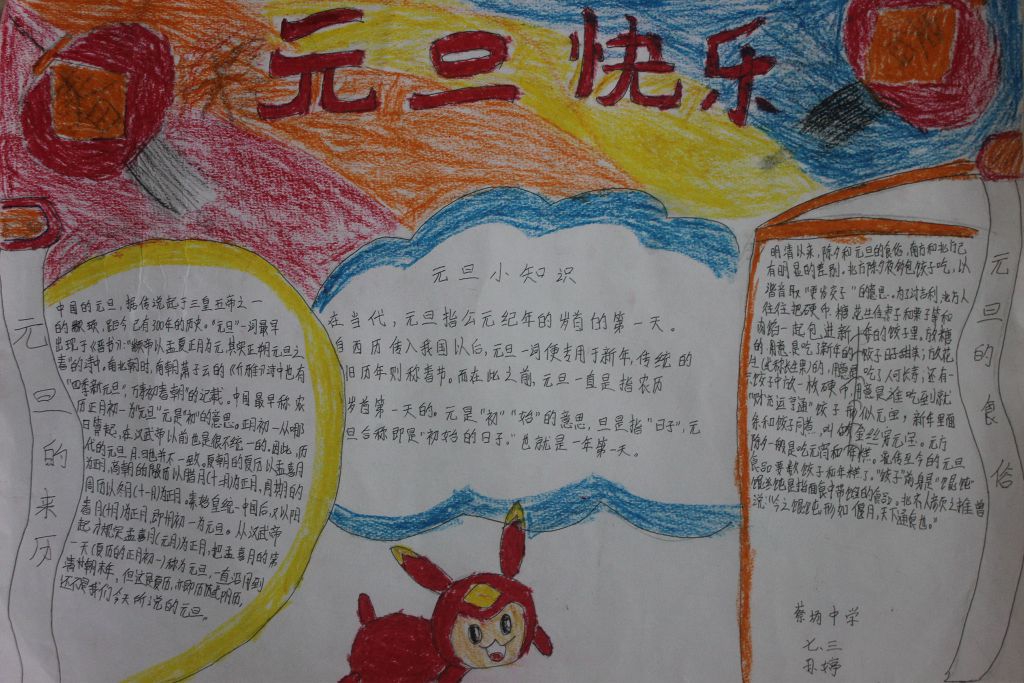 元旦快乐
元旦的来历
中国的元旦，据传说起于三皇五帝之一
的颛顼，距今已有3000年的历史。"元旦"一词最早
出现于《晋书》："颛帝以孟夏正月为元，其实正朔元旦之
春"的诗中。南北朝时，南朝萧子云的《介雅》诗中也有
"四季新元旦，万寿初春朝"的记载。中国最早称农
历正月初一为"元旦"元是"初"的意思。正月初一从哪
日算起，在汉武帝以前也是很不统一的。因此，历
代的元旦月、日也并不一致。夏朝的夏历以孟喜月
为正月，商朝的殷历以腊月（十二月）为正月，周朝的
周历以冬月（十一月）为正月。秦始皇统一中国后，又以阳
春月（十月）为正月，即十月初一为元旦。从汉武帝
起，才规定孟喜月（元月）为正月，把孟喜月的第
一天（夏历的正月初一）称为元旦，一直沿用到
清朝末年。但这是夏历，亦即历或阴历，
还不是我们今天所说的元旦。
元旦小知识
在当代，元旦指公元纪年的岁首的第一天。
自西历传入我国以后，元旦一词便专用于新年，传统的
旧历年则称春节。而在此之前，元旦一直是指农历
岁首第一天的。元是"初""始"的意思，旦是指"日子"，元
旦合称即是"初始的日子"。也就是一年第一天。
元旦的食俗
明清以来，除夕和元旦的食俗，南方和北方已
有明显的差别。北方除夕夜必包饺子吃，以
谐音取"更岁交子"的意思。为了讨吉利，北方人
往往把硬币、糖、花生仁、枣子和栗子等和
肉馅一起包进新年的饺子里。放糖
的用意是吃了新年的饺子日子甜美；放花
生（或称长生果）的，用意是吃了人可长寿；还有一
饺子中放一枚硬币，用意是谁吃到就
"财运亨通"饺子形似元宝，新年里面
条和饺子同煮，叫做金丝穿元宝。元方
除夕一般是吃元筒和年样。
说："今之馄饨，形如偃月，天下通食也。"
蔡坊中学
七、三
孙婷